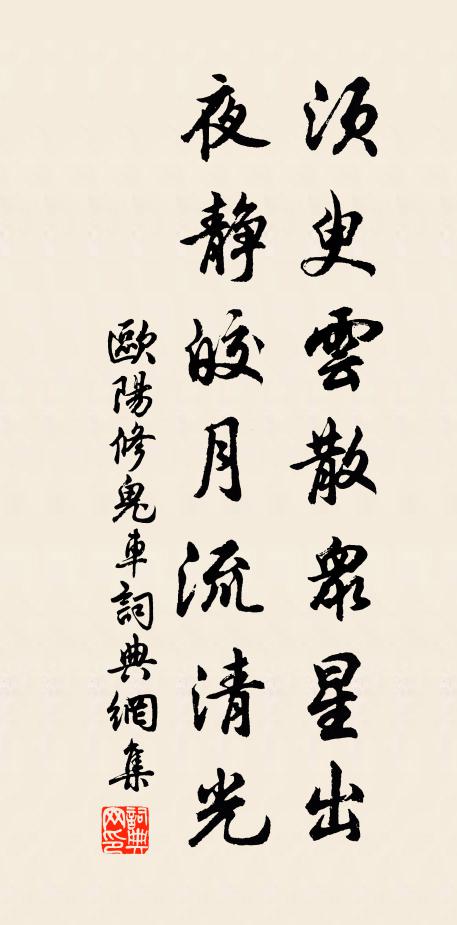 須臾雲散衆星出
夜靜皎月流清光
歐陽修鬼車詞典網集
詞典網印